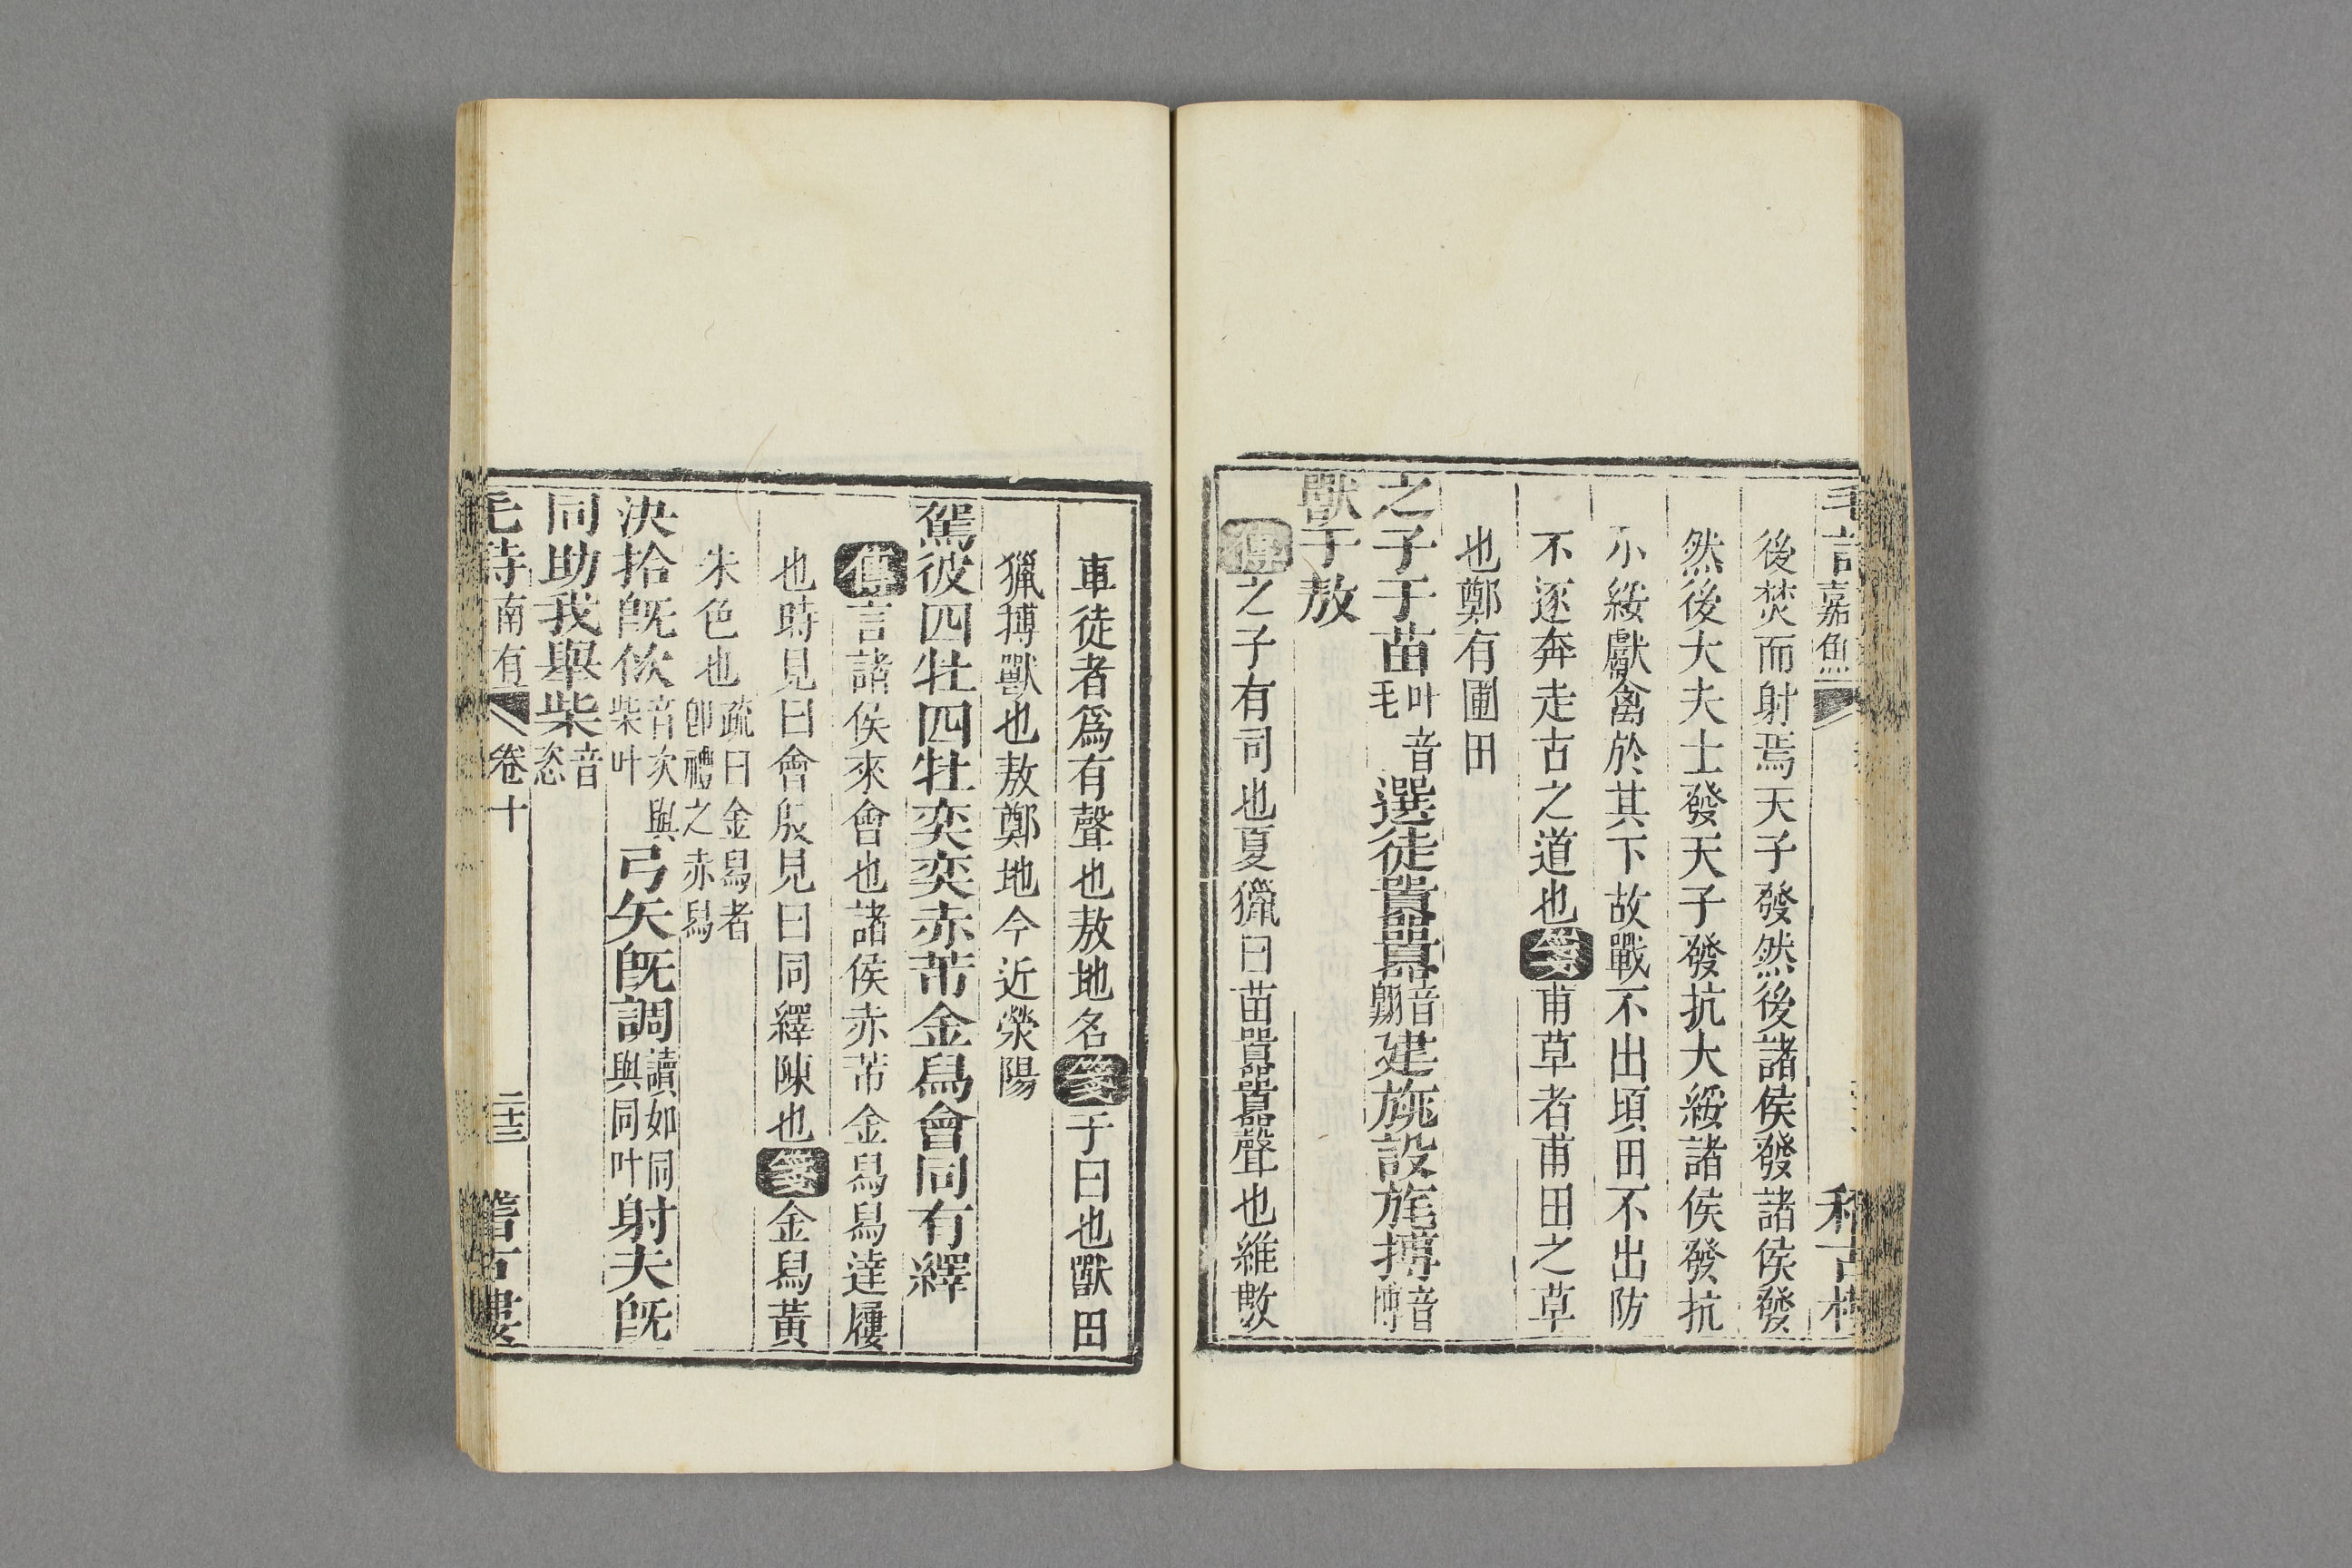 毛詩嘉魚
稽古樓
後焚而射焉天子發然後諸侯發諸侯發
然後大夫士發天子發抗大綏諸侯發抗
小綏獻禽於其下故戰不出頃田不出防
不逐奔走古之道也箋甫草者甫田之草
也鄭有圃田
之子于苗叶音毛選徒囂囂音翺建旐設旄搏音博
獸于敖
傳之子有司也夏獵曰苗囂囂聲也維數
車徒者爲有聲也敖地名箋于曰也獸田
獵搏獸也敖鄭地今近滎陽
駕彼四牡四牡奕奕赤芾金舄會同有繹
傳言諸侯來會也諸侯赤芾金舄舄達屨
也時見曰會殷見曰同繹陳也箋金舄黃
朱色也疏曰金舄者卽禮之赤舄
決拾旣佽音次與柴叶弓矢旣調讀如同與同叶射夫旣
同助我舉柴音恣
毛詩南有 卷十 二十三 稽古樓